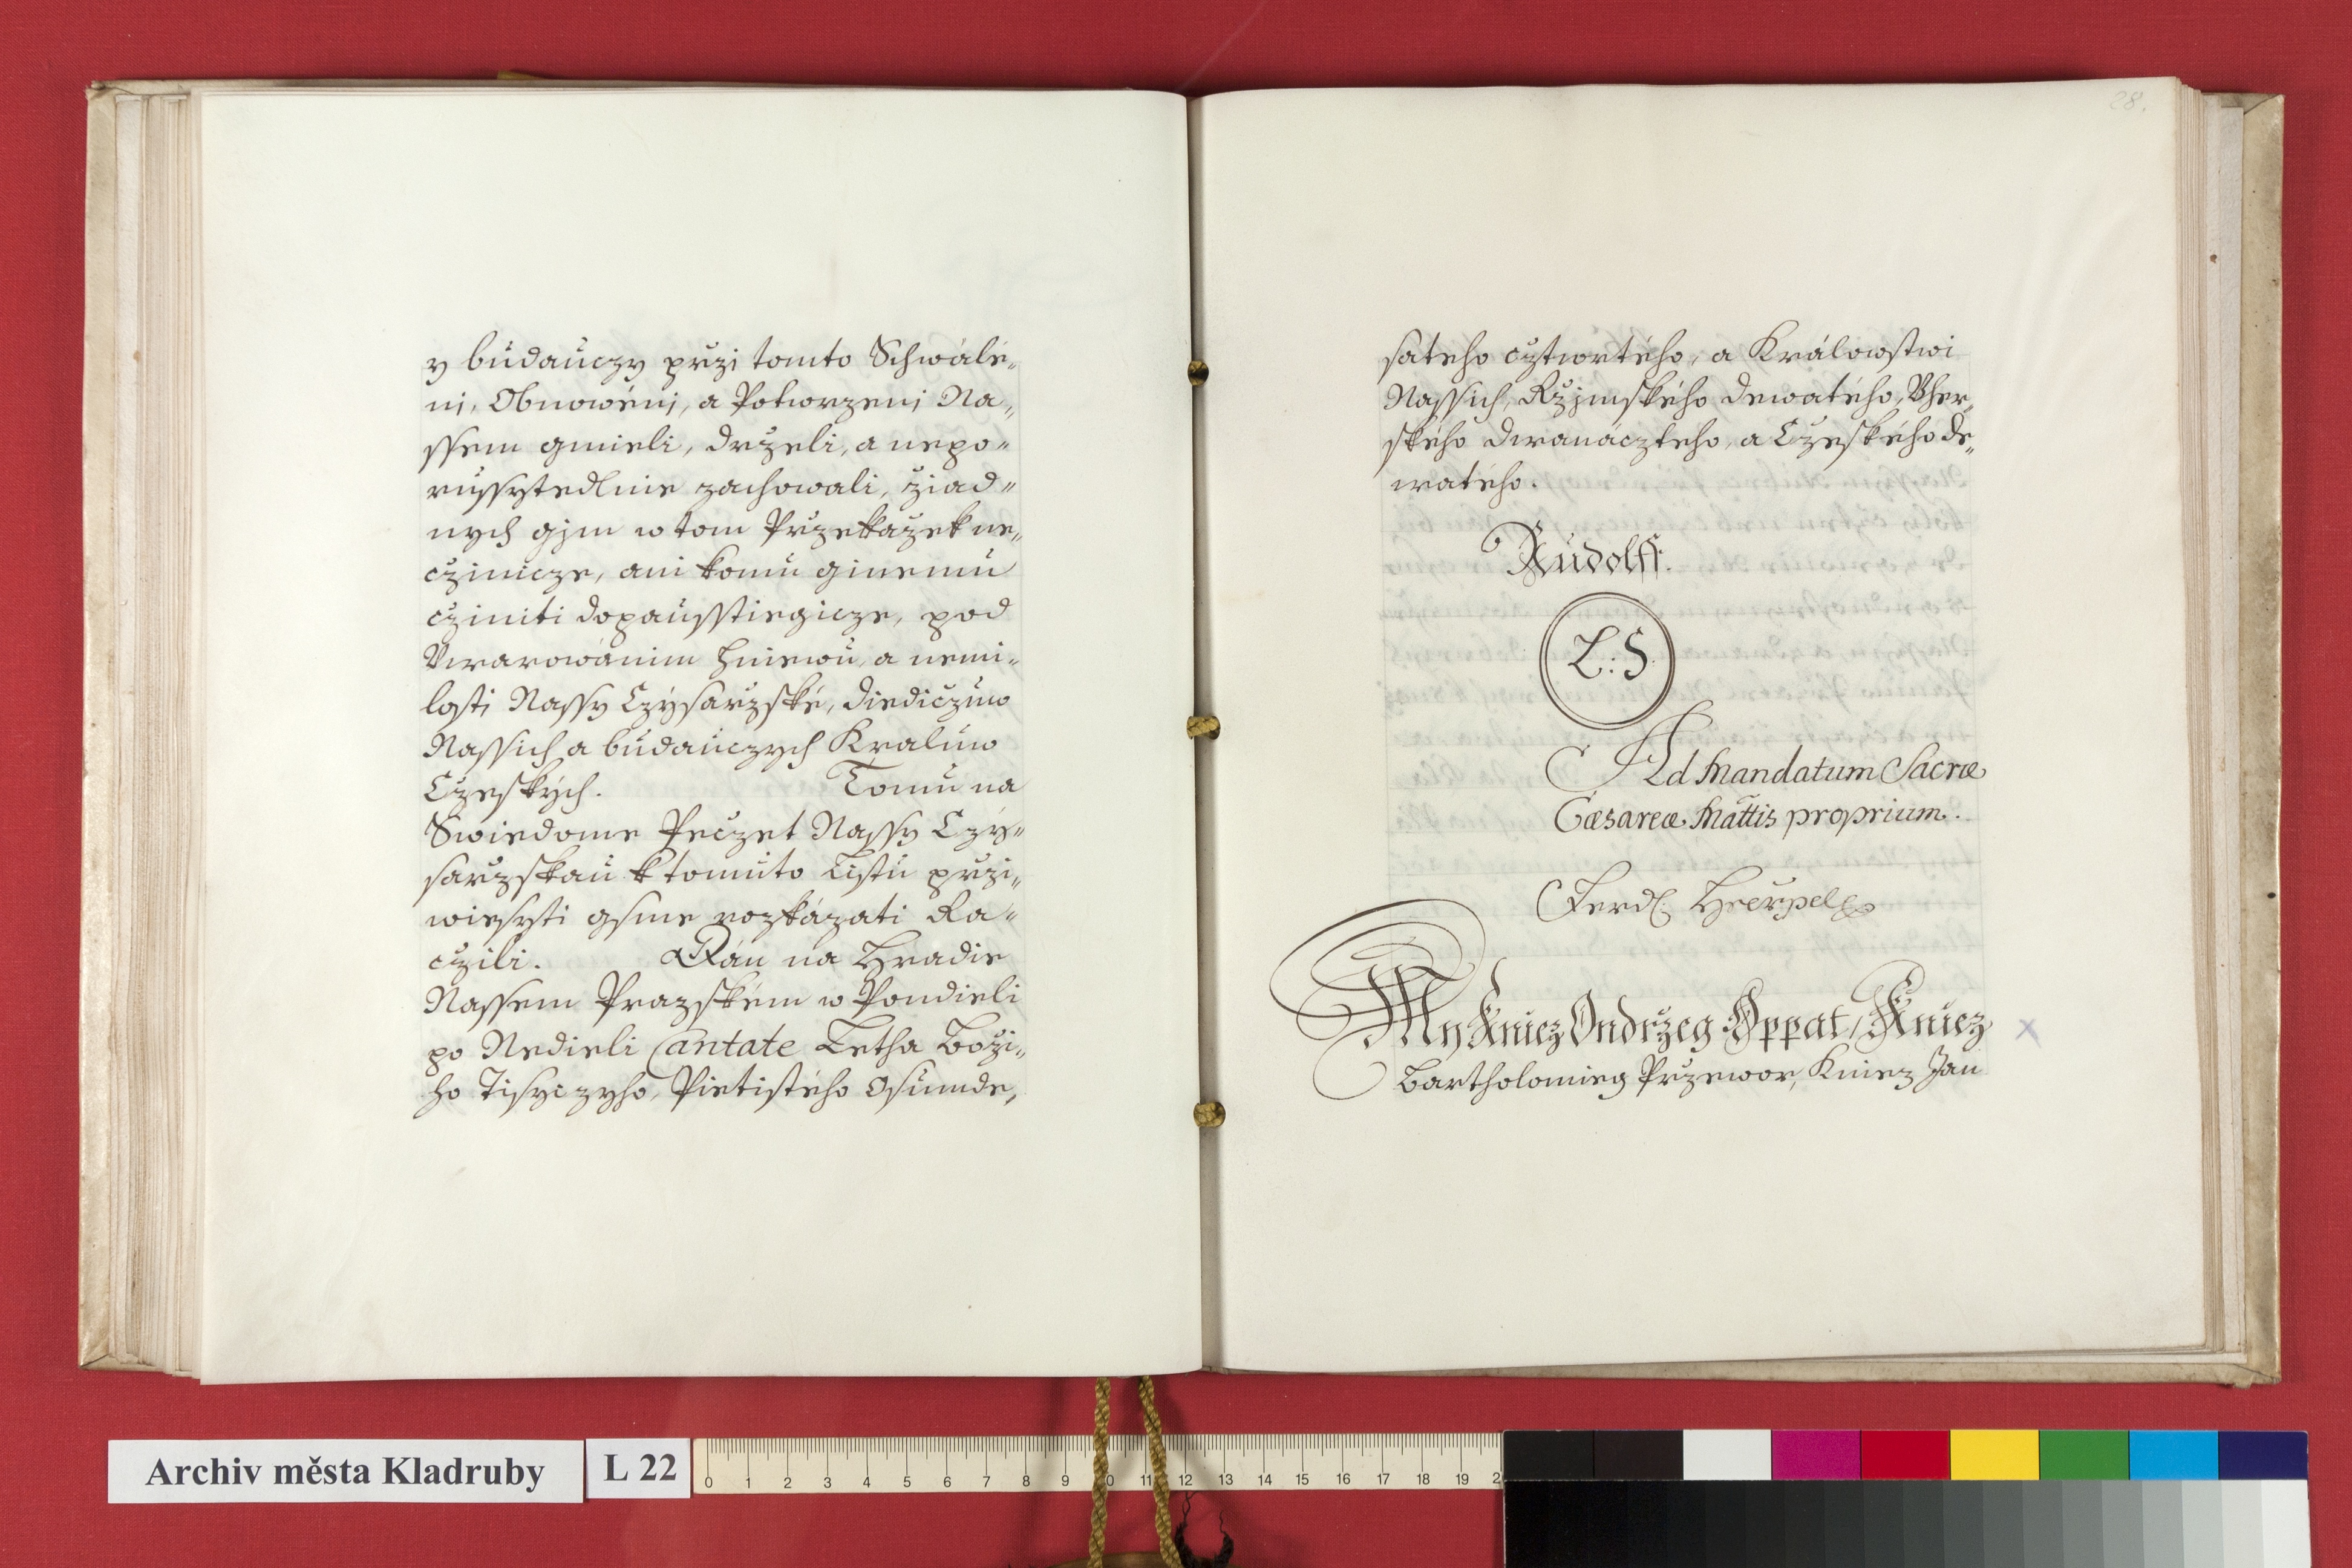 y budauczy przi tomto Schwálé„
ni, Obnowéni, a Potwrzeni Na„
ssem gmieli, drželi, a nepo„
russytedlnie zachowali, žiad„
nych gjm w tom Przekažek ne„
cžinicze, ani komu ginemu
cžiniti dopausstiegicze, pod
Uwarowánim hniewu, a nemi„
losti Nassy Czýsaržské, diedičzuw
Nassich a budauczých Kraluw
Cžeských. Tomu na
Swiedome Pečzet Nassy Czý„
saržskau k tomuto Listu przi„
wiesyti gsme rozkázati Ra„
cžili. Dán na Hradie
Nassem Pražském w Pondieli
po Nedieli Cantate Letha Boži„
ho Tisyczyho, Pietistého Osumde„
28.
satého cžtwrtého, a Královstwi
Nassich, Ržjmského dewatého, Vher„
ského dwanáczteho, a Cžeského de„
watého.
Rudolff.
L: S.
Ad Mandatum Sacræ
Cæsareæ Mattis proprium.
My Kniez Ondržeg Oppat, Kniez
Bartholomieg Przewor, Kniez Jan
x
Archiv města Kladruby
L 22
0 1 2 3 4 5 6 7 8 9 10 11 12 13 14 15 16 17 18 19 2